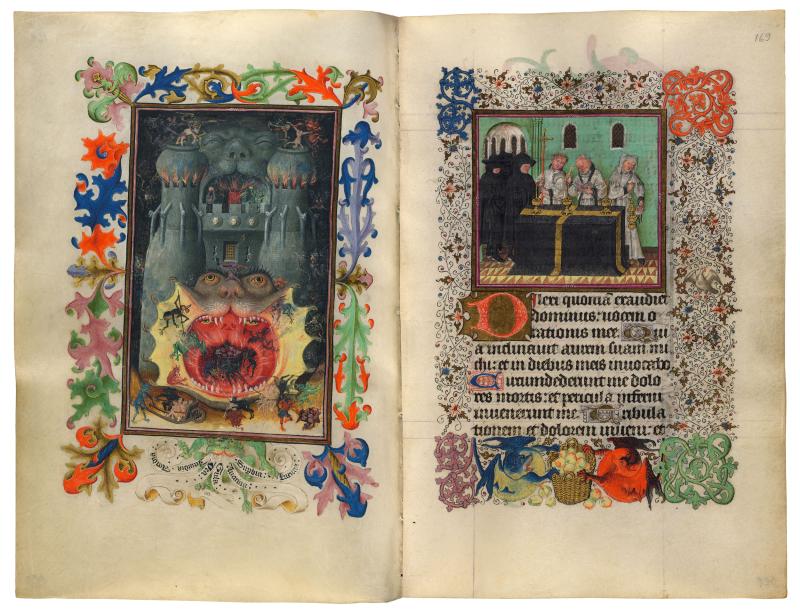 169
Dilexi quoniā exaudiet
dominus: uocem o
rationis mee. Qui
a inclinauit aurem suam mi
chi: et in diebus meis inuocabo
Circumdederunt me dolo
res mortis: et pericula inferni
inuenerunt me. Tribula
tionem et dolorem inueni: et